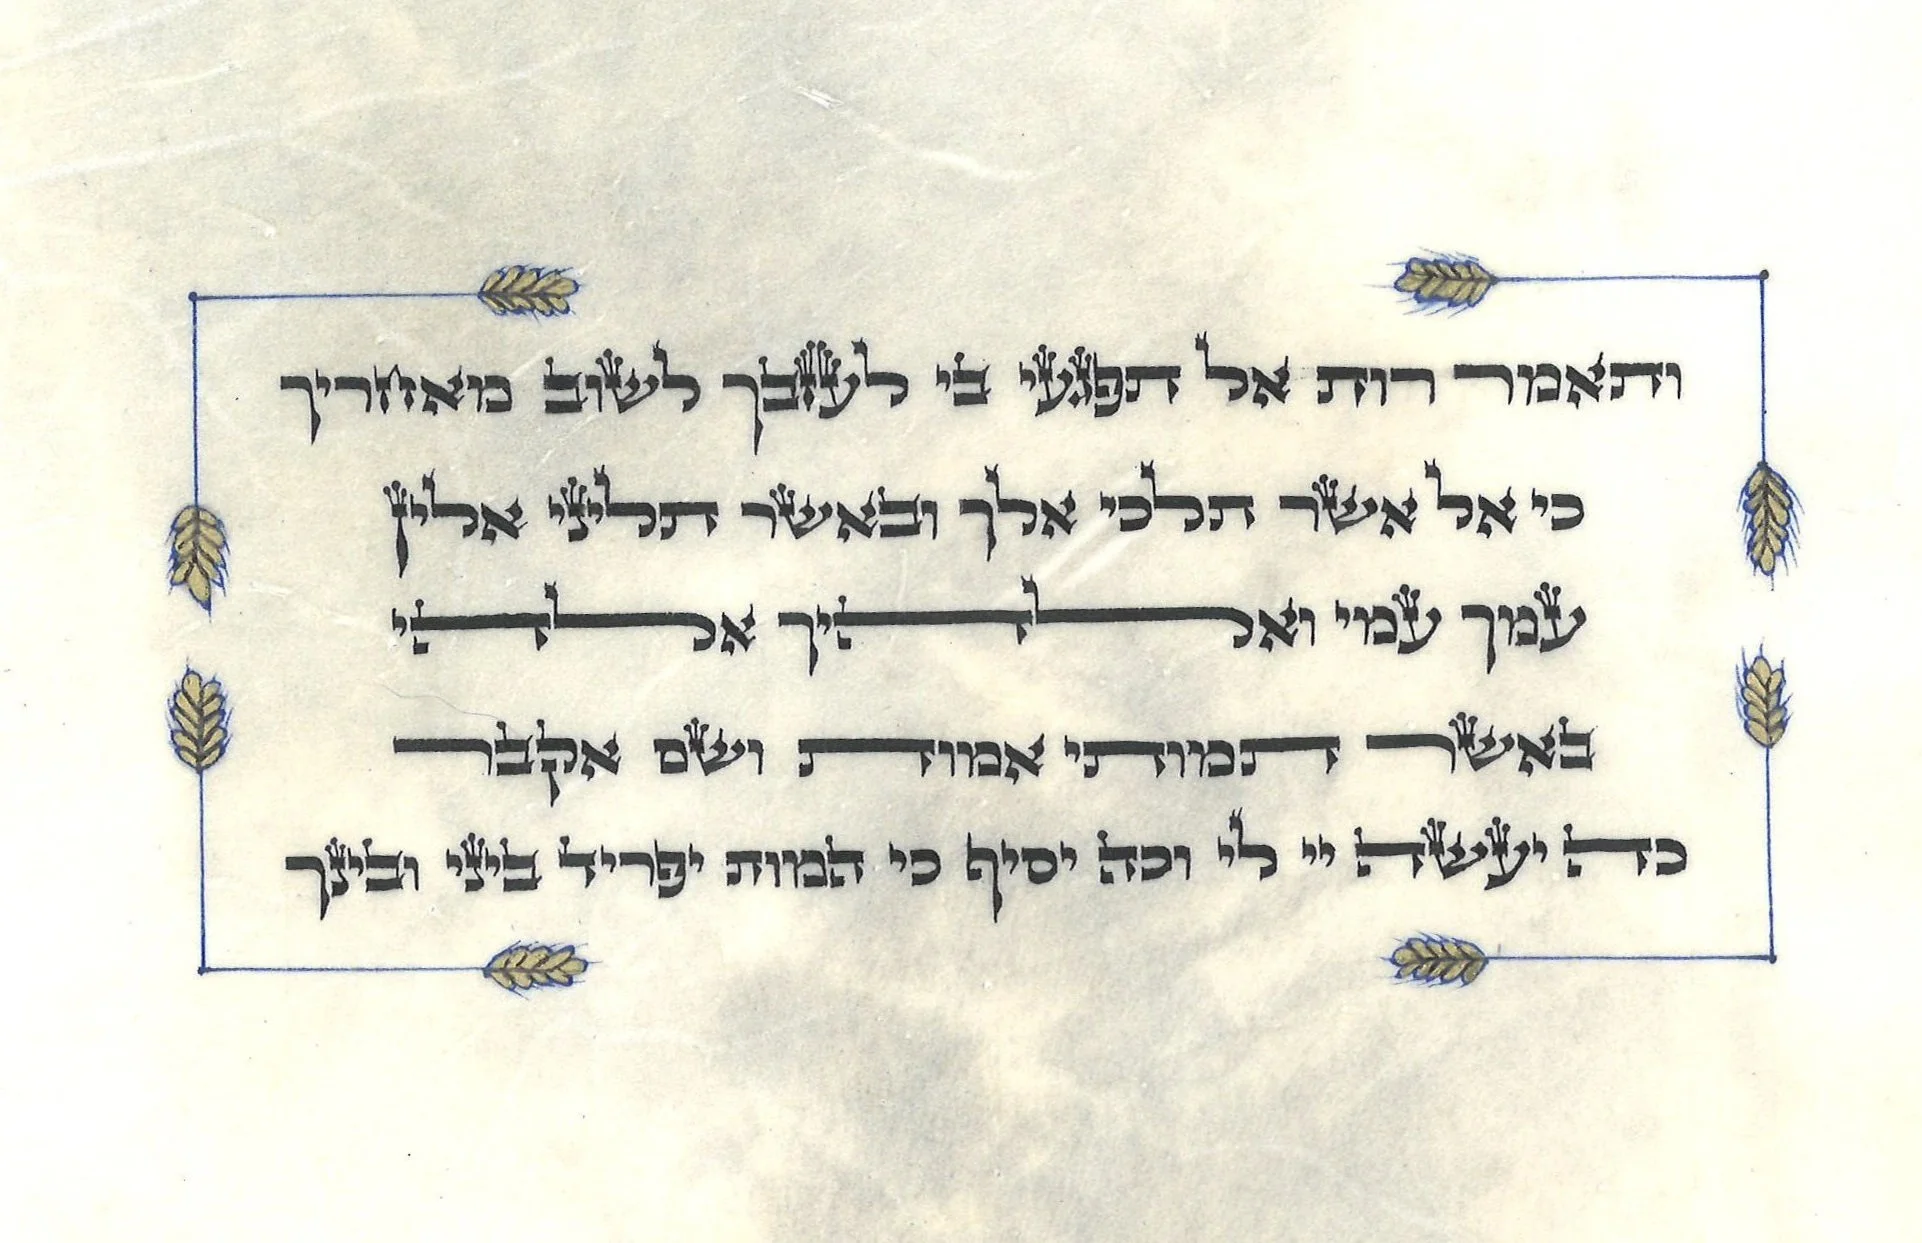 ותאמר רות אל תפגעי בי לעזבך לשוב מאחריך
כי אל אשר תלכי אלך ובאשר תליני אלין
עמך עמי ואלהיך אלהי
באשר תמותי אמות ושם אקבר
כה יעשה יי לי וכה יסיף כי המות יפריד ביני ובינך